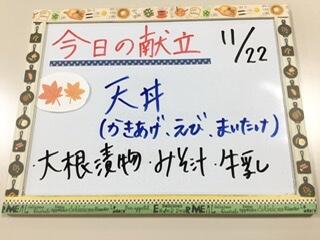 今日の献立
11/22
天丼
(かきあげ、えび、まいたけ)
・大根漬物・みそ汁・牛乳